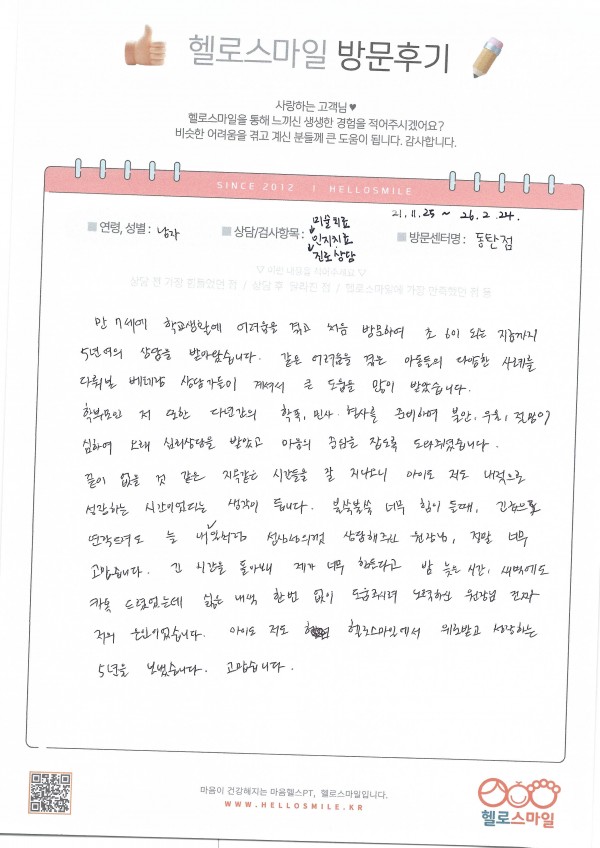 헬로스마일 방문후기
사랑하는 고객님 ♥
헬로스마일을 통해 느끼신 생생한 경험을 적어주시겠어요?
비슷한 어려움을 겪고 계신 분들께 큰 도움이 됩니다. 감사합니다.
SINCE 2012 I HELLOSMILE
21.11.25 ~ 26.2.24.
연령, 성별 : 남자
상담/검사항목 : 미술치료
인지치료
진로상담
방문센터명 : 동탄점
▽ 이런 내용을 적어주세요 ▽
상담 전 가장 힘들었던 점 / 상담 후 달라진 점 / 헬로스마일에 가장 만족했던 점 등
만 7세에 학교생활에 어려움을 겪고 처음 방문하여 초6이 되는 지금까지
5년여의 상담을 받아왔습니다. 같은 어려움을 겪는 아동들의 다양한 사례를
다뤄보신 베테랑 상담가들이 계셔서 큰 도움을 많이 받았습니다.
학부모인 저 또한 다년간의 학폭, 민사, 형사를 준비하며 불안, 우울, 절망이
심하여 오래 심리상담을 받았고 마음의 중심을 잡도록 도와주셨습니다.
끝이 없을 것 같은 지옥같은 시간들을 잘 지나오니 아이도 저도 내적으로
성장하는 시간이었다는 생각이 듭니다. 불쑥불쑥 너무 힘이 들때, 긴급으로
연락드려도 늘 내일처럼 성심성의껏 상담해주신 원장님, 정말 너무
고맙습니다. 긴 시간을 돌아보니 제가 너무 힘든다고 밤 늦은 시간, 새벽에도
카톡 드렸었는데 싫은 내색 한번 없이 도움주시려 노력하신 원장님 진짜
저의 은인이었습니다. 아이도 저도 헬로스마일에서 위로받고 성장하는
5년을 보냈습니다. 고맙습니다.
마음이 건강해지는 마음헬스PT, 헬로스마일입니다.
WWW.HELLOSMILE.KR
헬로스마일